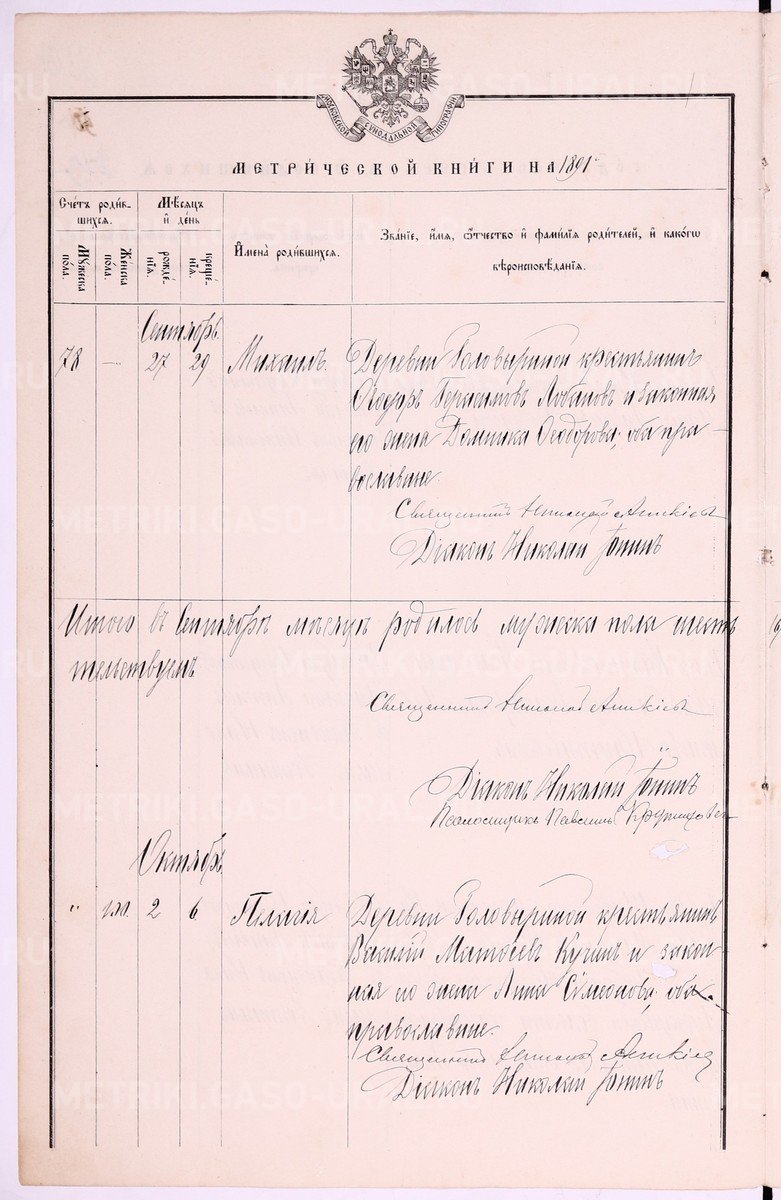 МОСКОВСКОЙ СѴНОДАЛЬНОЙ ТИПОГРАФІИ
МЕТРИ́ЧЕСКОЙ КНИ́ГИ НА 1891
Сче́тъ роди́в-
шихся.
Мꙋ́жеска
по́ла.
Же́нска
по́ла.
Мѣ́сяцъ
и҆ де́нь
рожде́-
нїя.
креще́-
нїя.
И҆мена̀ роди́вшихся.
Зва́нїе, и҆́мя, ѻ҆́тчество и҆ фами́лїя роди́телей, и҆ како́гѡ
вѣроисповѣ́данїя.
Сентябрь
78 — 27 29 Михаилъ. Деревни Головыриной крестьянинъ
Ѳеодоръ Герасимовъ Лобановъ и законная
его жена Домника Ѳеодорова, оба пра-
вославные.
Священникъ
Діаконъ Николай Іонинъ
Итого въ Сентябрѣ мѣсяцѣ родилось мужеска пола шесть
тельствуемъ
Священникъ
Діаконъ Николай Іонинъ
Псаломщикъ
Октябрь
" 2 6 Пелагія Деревни Головыриной крестьянинъ
Василій Матѳеевъ и закон-
ная его жена Анна Сѵмеонова, оба
православные.
Священникъ
Діаконъ Николай Іонинъ